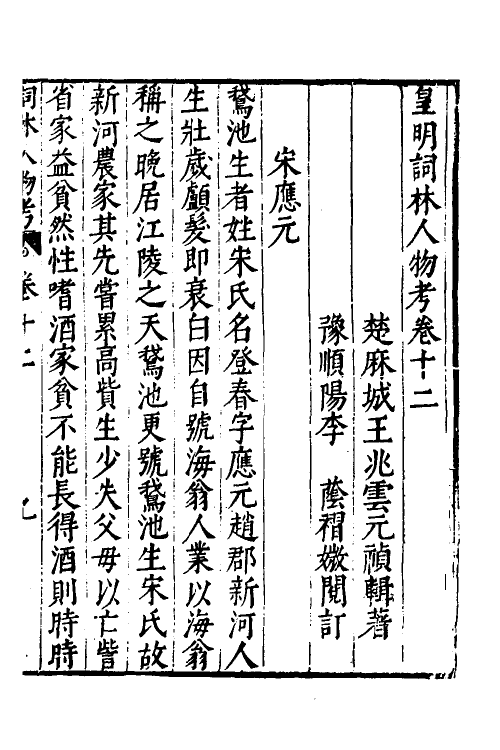 皇明詞林人物考卷十二
楚麻城王兆雲元禎輯著
豫順陽李　蔭褶嬓閱訂
宋應元
鵞池生者姓宋氏名登春字應元趙郡新河人
生壯歲顱髮即衰白因自號海翁人業以海翁
稱之晚居江陵之天鵞池更號鵞池生宋氏故
新河農家其先嘗累高貲生少失父母以亡訾
省家益貧然性嗜酒家貧不能長得酒則時時
詞林人物考　卷十二　九